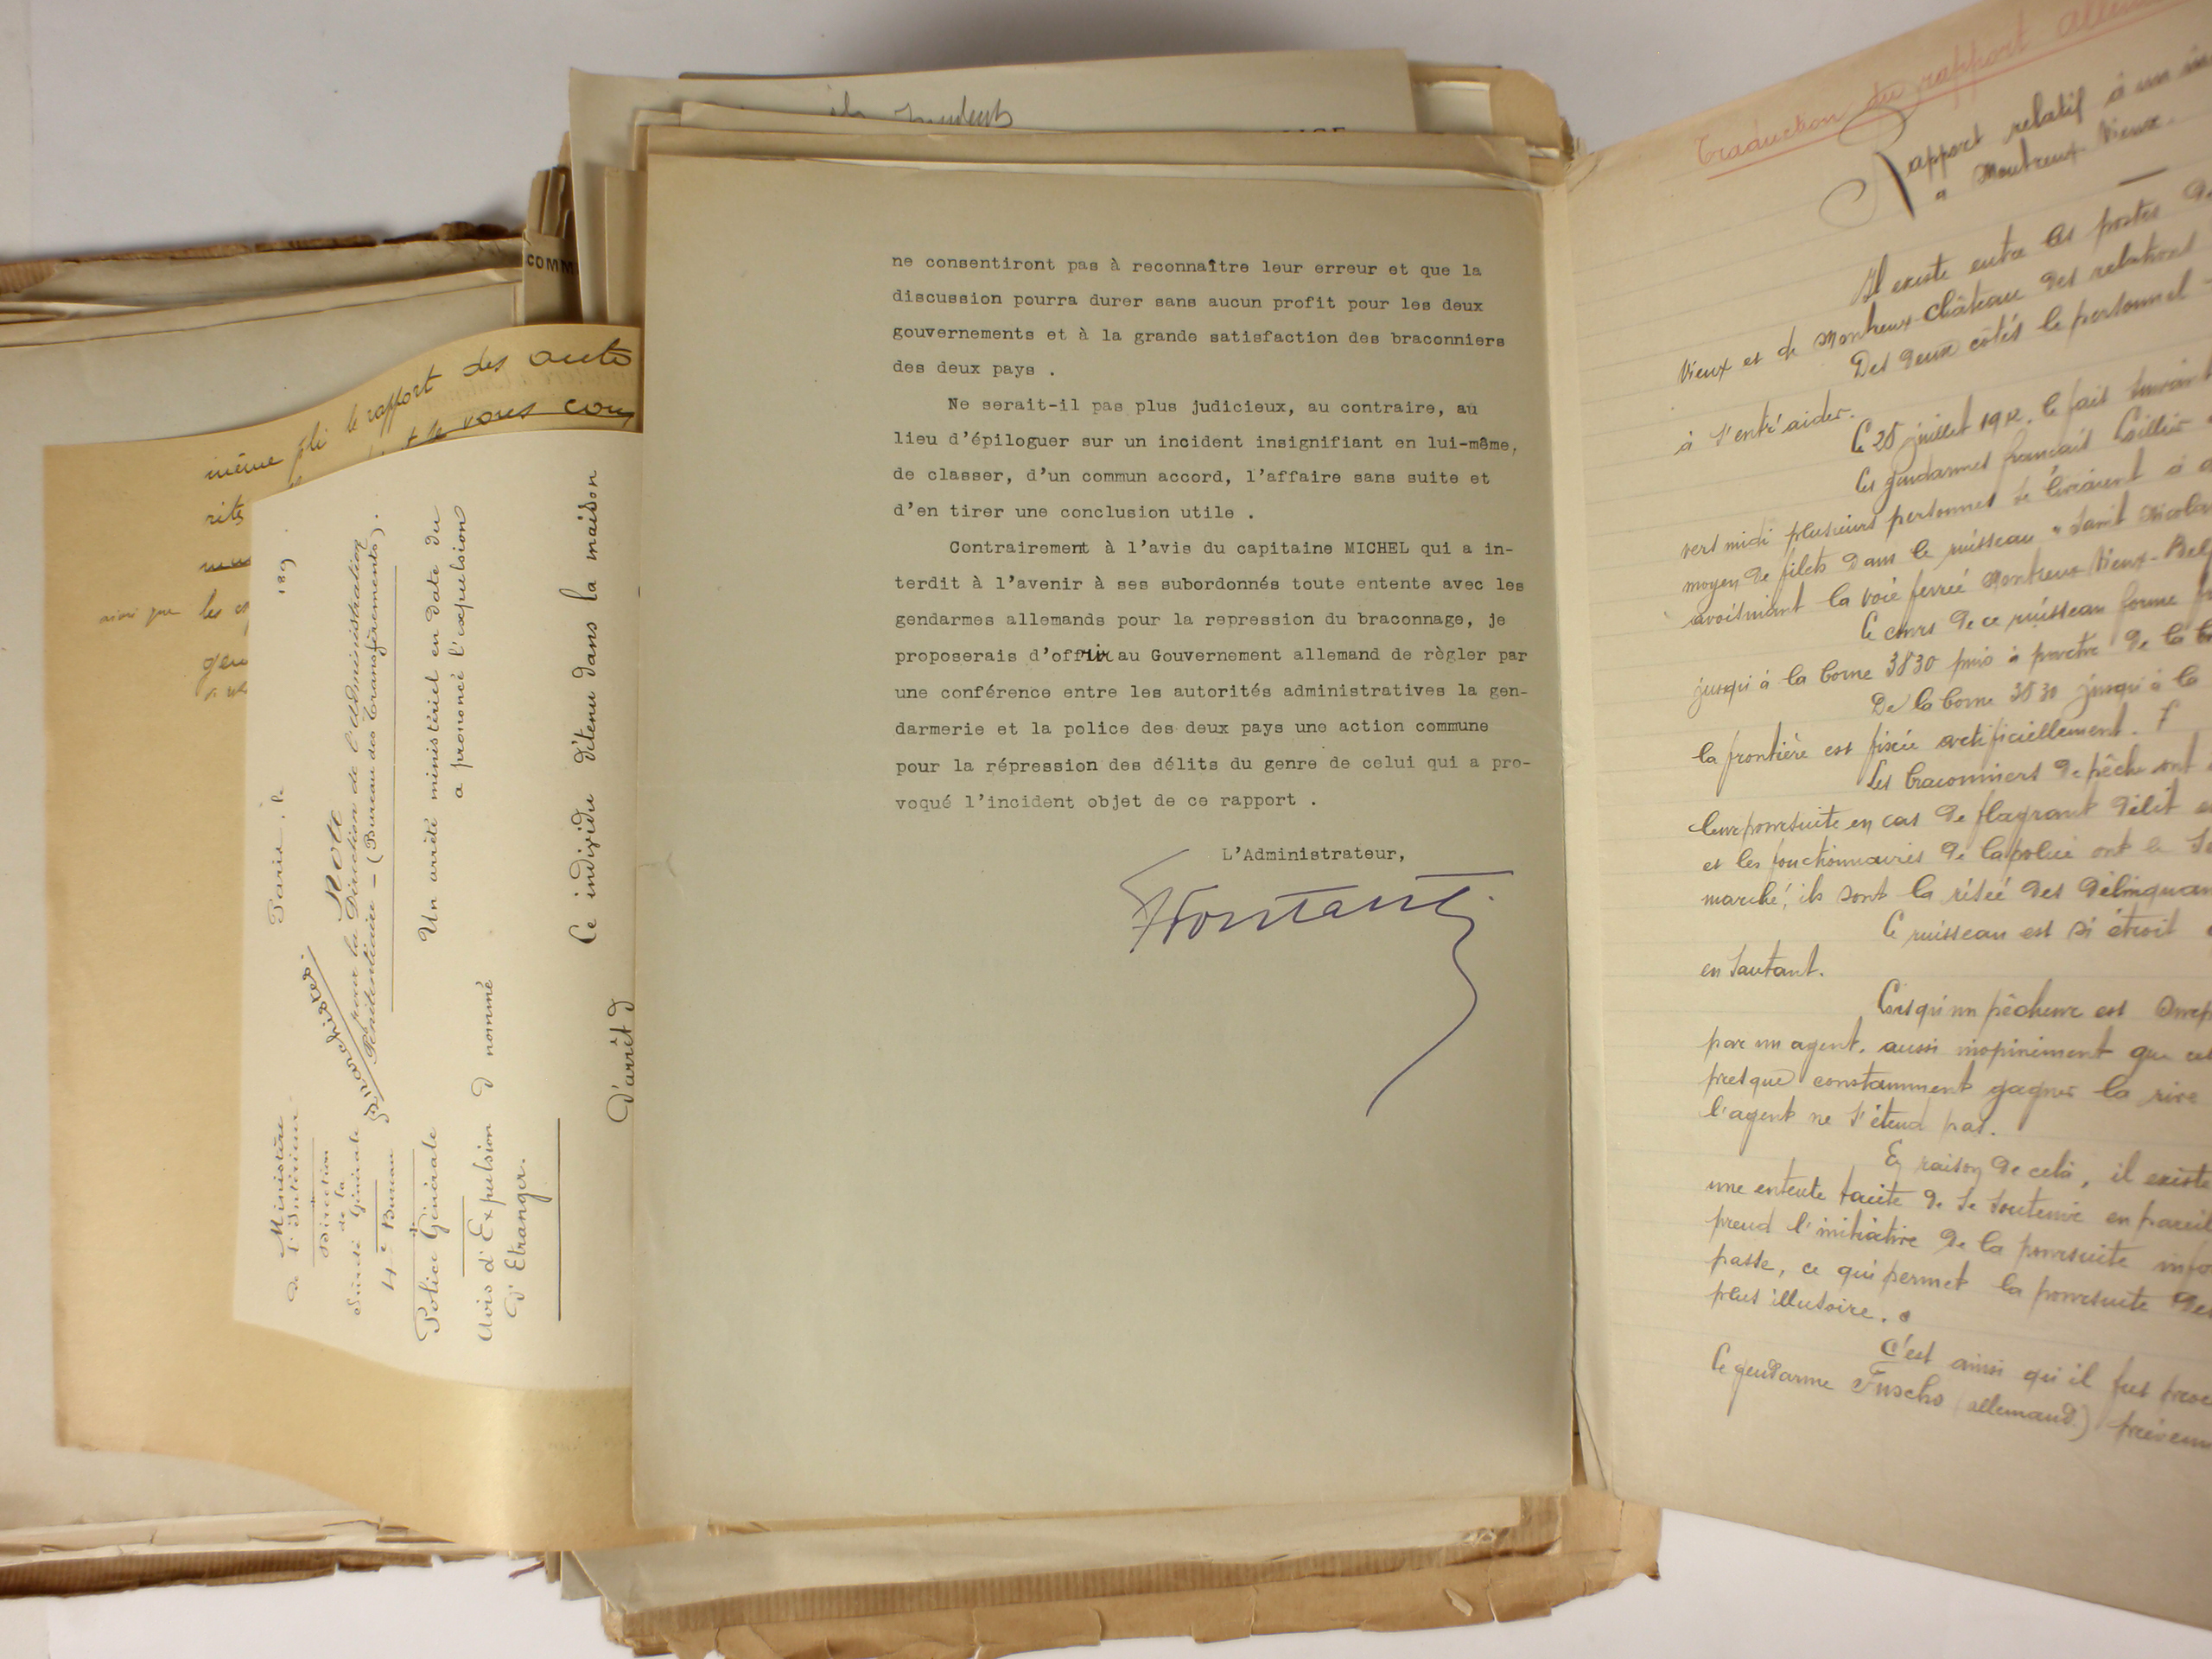 même pli le rapport des auto
rités
ainsi que les
Ministère
de l'Intérieur
Direction
de la
Sûreté Générale
4e Bureau
Police Générale
Avis d'Expulsion
d'Etranger.
Paris, le 189 .
Note
pour la Direction de l'Administration
Pénitentiaire - (Bureau des Transfèrements).
Un arrêté ministériel en date du
a prononcé l'expulsion
d nommé
Ce individu détenu dans la maison
d'arrêt d
COMM
ne consentiront pas à reconnaître leur erreur et que la
discussion pourra durer sans aucun profit pour les deux
gouvernements et à la grande satisfaction des braconniers
des deux pays .
Ne serait-il pas plus judicieux, au contraire, au
lieu d'épiloguer sur un incident insignifiant en lui-même,
de classer, d'un commun accord, l'affaire sans suite et
d'en tirer une conclusion utile .
Contrairement à l'avis du capitaine MICHEL qui a in-
terdit à l'avenir à ses subordonnés toute entente avec les
gendarmes allemands pour la repression du braconnage, je
proposerais d'offrir au Gouvernement allemand de règler par
une conférence entre les autorités administratives la gen-
darmerie et la police des deux pays une action commune
pour la répression des délits du genre de celui qui a pro-
voqué l'incident objet de ce rapport .
L'Administrateur,
Traduction du rapport allem
Rapport relatif à un in
à Montreux Vieux.
Il existe entre les postes de
Vieux et de Montreux-Château des relations
Des deux côtés le personnel
à s'entr'aider.
Le 28 juillet 1912, le fait suivant
Les gendarmes français
vers midi plusieurs personnes se livraient à
moyen de filets dans le ruisseau "Saint Nicolas
avoisinant la voie ferrée Montreux Vieux-Belf
Le cours de ce ruisseau forme
jusqu'à la borne 3830 puis à partir de la b
De la borne 3830 jusqu'à la
la frontière est fixée artificiellement.
Les braconniers de pêche ont
leur poursuite en cas de flagrant délit
et les fonctionnaires de la police ont le
marché; ils sont la risée des délinquan
Ce ruisseau est si étroit
en sautant.
Lorsqu'un pêcheur est surp
par un agent, aussi inopinément que
presque constamment gagner la rive
l'agent ne s'étend pas.
En raison de cela, il existe
une entente tacite de se soutenir en pareil
prend l'initiative de la poursuite info
passe, ce qui permet la poursuite des
plus illusoire.
C'est ainsi qu'il fut
le gendarme Fuschs (allemand) préven